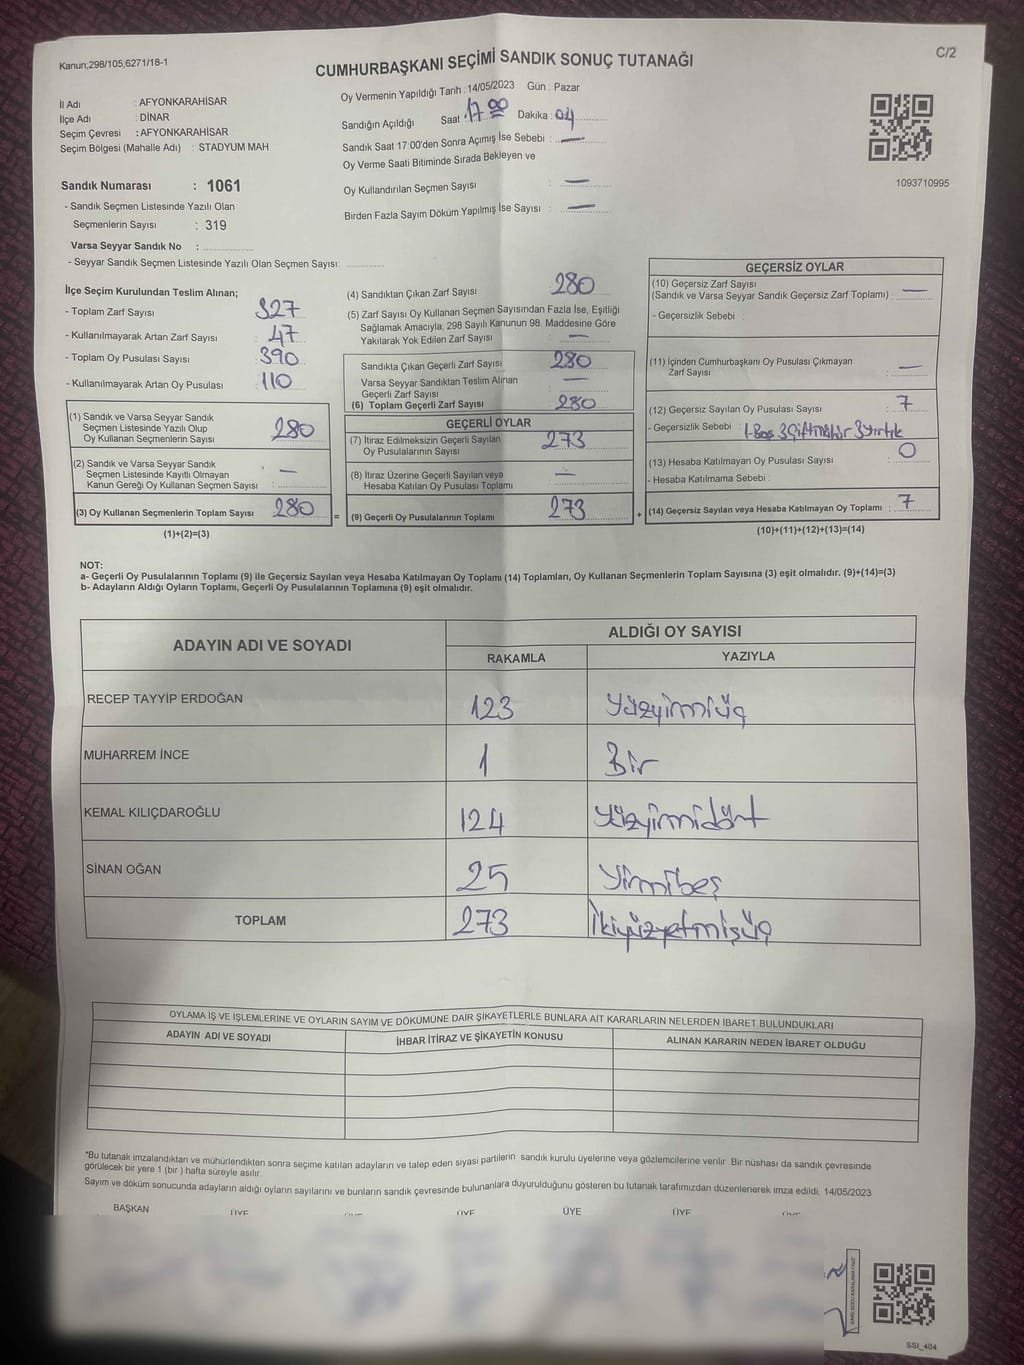 Kanun;298/105;6271/18-1
C/2
CUMHURBAŞKANI SEÇİMİ SANDIK SONUÇ TUTANAĞI
İl Adı : AFYONKARAHİSAR
İlçe Adı : DİNAR
Seçim Çevresi : AFYONKARAHİSAR
Seçim Bölgesi (Mahalle Adı) : STADYUM MAH
Oy Vermenin Yapıldığı Tarih : 14/05/2023 Gün : Pazar
Sandığın Açıldığı Saat : 17 00 Dakika : 04
Sandık Saat 17:00'den Sonra Açımış İse Sebebi : —
Oy Verme Saati Bitiminde Sırada Bekleyen ve
Oy Kullandırılan Seçmen Sayısı : —
Birden Fazla Sayım Döküm Yapılmış İse Sayısı : —
1093710995
Sandık Numarası : 1061
- Sandık Seçmen Listesinde Yazılı Olan
Seçmenlerin Sayısı : 319
Varsa Seyyar Sandık No :
- Seyyar Sandık Seçmen Listesinde Yazılı Olan Seçmen Sayısı:
İlçe Seçim Kurulundan Teslim Alınan;
- Toplam Zarf Sayısı : 327
- Kullanılmayarak Artan Zarf Sayısı : 47
- Toplam Oy Pusulası Sayısı : 390
- Kullanılmayarak Artan Oy Pusulası : 110
(1) Sandık ve Varsa Seyyar Sandık
Seçmen Listesinde Yazılı Olup
Oy Kullanan Seçmenlerin Sayısı : 280
(2) Sandık ve Varsa Seyyar Sandık
Seçmen Listesinde Kayıtlı Olmayan
Kanun Gereği Oy Kullanan Seçmen Sayısı : —
(3) Oy Kullanan Seçmenlerin Toplam Sayısı 280
(1)+(2)=(3)
(4) Sandıktan Çıkan Zarf Sayısı : 280
(5) Zarf Sayısı Oy Kullanan Seçmen Sayısından Fazla İse, Eşitliği
Sağlamak Amacıyla; 298 Sayılı Kanunun 98. Maddesine Göre
Yakılarak Yok Edilen Zarf Sayısı : —
Sandıkta Çıkan Geçerli Zarf Sayısı : 280
Varsa Seyyar Sandıktan Teslim Alınan
Geçerli Zarf Sayısı : —
(6) Toplam Geçerli Zarf Sayısı : 280
GEÇERLİ OYLAR
(7) İtiraz Edilmeksizin Geçerli Sayılan
Oy Pusulalarının Sayısı : 273
(8) İtiraz Üzerine Geçerli Sayılan veya
Hesaba Katılan Oy Pusulası Toplamı : —
= (9) Geçerli Oy Pusulalarının Toplamı : 273
GEÇERSİZ OYLAR
(10) Geçersiz Zarf Sayısı
(Sandık ve Varsa Seyyar Sandık Geçersiz Zarf Toplamı) : —
- Geçersizlik Sebebi :
(11) İçinden Cumhurbaşkanı Oy Pusulası Çıkmayan
Zarf Sayısı : —
(12) Geçersiz Sayılan Oy Pusulası Sayısı : 7
- Geçersizlik Sebebi : 1-Boş 3 3 Yırtık
(13) Hesaba Katılmayan Oy Pusulası Sayısı : 0
- Hesaba Katılmama Sebebi :
+ (14) Geçersiz Sayılan veya Hesaba Katılmayan Oy Toplamı : 7
(10)+(11)+(12)+(13)=(14)
NOT:
a- Geçerli Oy Pusulalarının Toplamı (9) ile Geçersiz Sayılan veya Hesaba Katılmayan Oy Toplamı (14) Toplamları, Oy Kullanan Seçmenlerin Toplam Sayısına (3) eşit olmalıdır. (9)+(14)=(3)
b- Adayların Aldığı Oyların Toplamı, Geçerli Oy Pusulalarının Toplamına (9) eşit olmalıdır.
ADAYIN ADI VE SOYADI ALDIĞI OY SAYISI
RAKAMLA YAZIYLA
RECEP TAYYİP ERDOĞAN 123 Yüzyirmiüç
MUHARREM İNCE 1 Bir
KEMAL KILIÇDAROĞLU 124 Yüzyirmidört
SİNAN OĞAN 25 Yirmibeş
TOPLAM 273 İkiyüzyetmişüç
OYLAMA İŞ VE İŞLEMLERİNE VE OYLARIN SAYIM VE DÖKÜMÜNE DAİR ŞİKAYETLERLE BUNLARA AİT KARARLARIN NELERDEN İBARET BULUNDUKLARI
ADAYIN ADI VE SOYADI İHBAR İTİRAZ VE ŞİKAYETİN KONUSU ALINAN KARARIN NEDEN İBARET OLDUĞU
*Bu tutanak imzalandıktan ve mühürlendikten sonra seçime katılan adayların ve talep eden siyasi partilerin sandık kurulu üyelerine veya gözlemcilerine verilir. Bir nüshası da sandık çevresinde
görülecek bir yere 1 (bir ) hafta süreyle asılır.
Sayım ve döküm sonucunda adayların aldığı oyların sayılarını ve bunların sandık çevresinde bulunanlara duyurulduğunu gösteren bu tutanak tarafımızdan düzenlenerek imza edildi. 14/05/2023
BAŞKAN ÜYE ÜYE ÜYE ÜYE
SSI_404